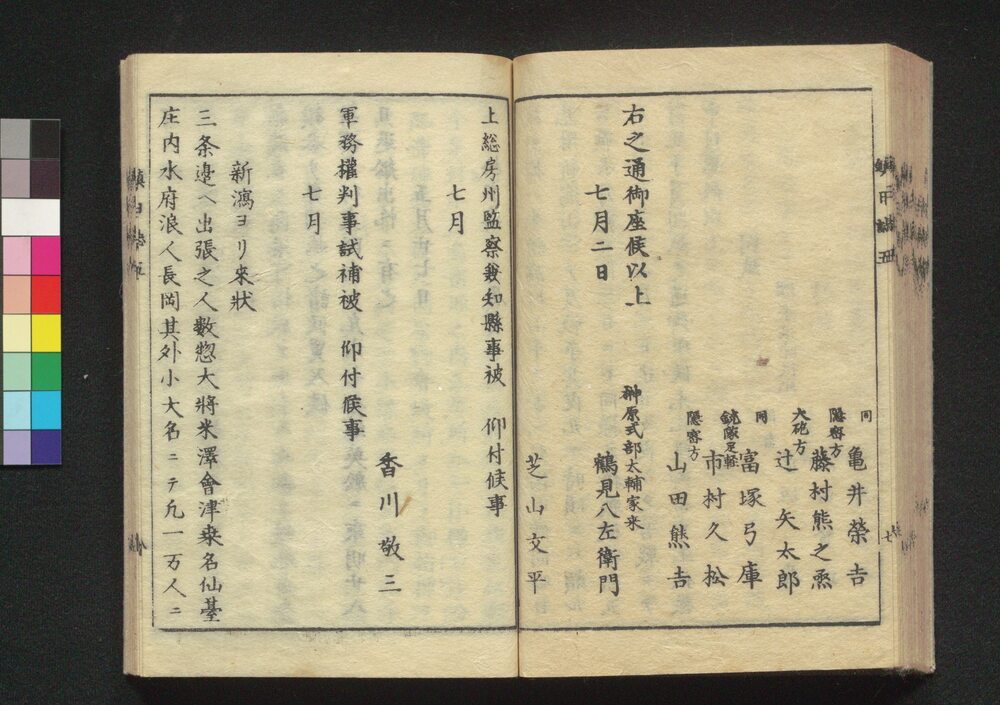 同
亀井榮吉
隠密方
藤村熊之烝
大砲方
辻矢太郎
同
冨塚弓庫
銃隊足軽
市村久松
隠密方
山田熊吉
榊原式部太輔家来
鶴見八左衛門
右之通御座候以上
七月二日
芝山文平
上総房州監察兼知縣事被 仰付候事
七月
香川敬三
軍務權判事試補被 仰付候事
七月
新潟ヨリ來狀
三条邉ヘ出張之人數惣大將米澤會津桒名仙䑓
庄内水府浪人長岡其外小大名ニテ凢一万人ニ